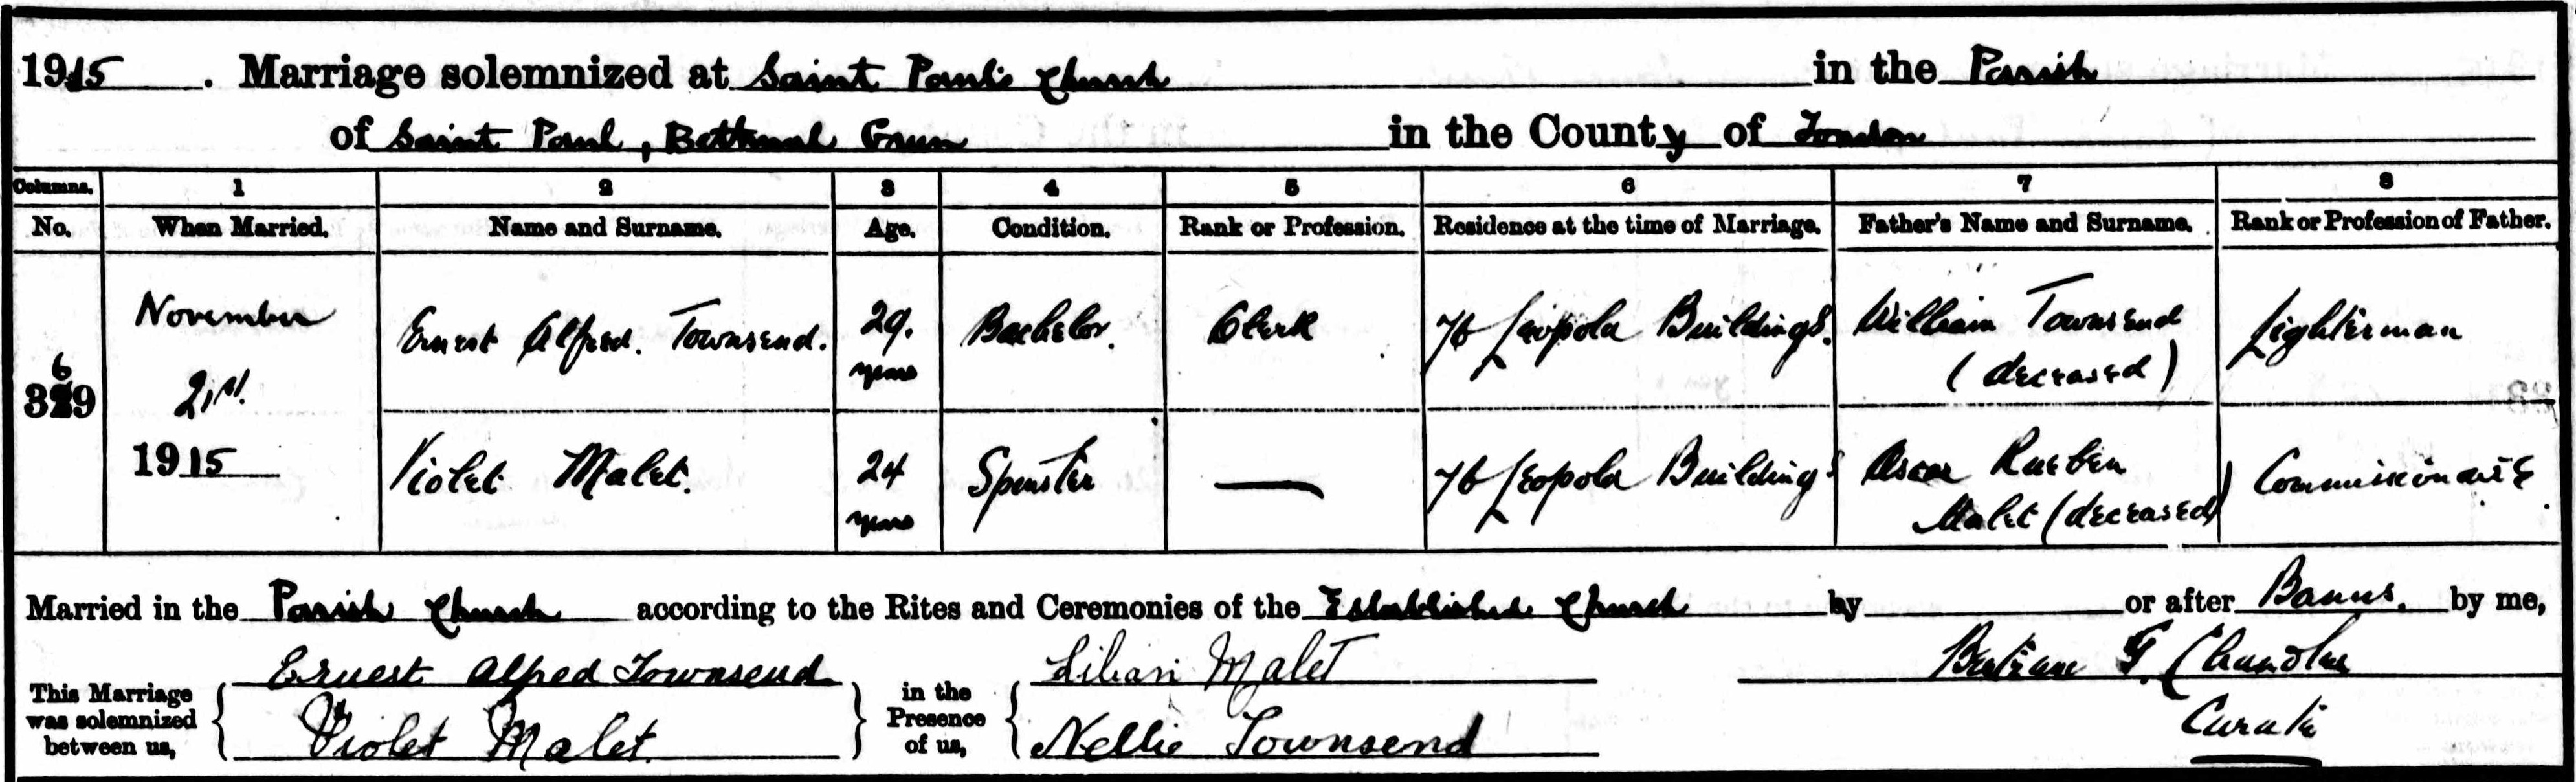 1915. Marriage solemnized at Saint Paul's Church in the Parish
of Saint Paul, Bethnal Green in the County of London
Columns. 1 2 3 4 5 6 7 8
No. When Married. Name and Surname. Age. Condition. Rank or Profession. Residence at the time of Marriage. Father's Name and Surname. Rank or Profession of Father.
369 November 21st. 1915
Ernest Alfred. Townsend. 29. years Bachelor. Clerk 76 Leopold Buildings. William Townsend (deceased) Lighterman
Violet Malet. 24 years Spinster — 76 Leopold Buildings Oscar Rueben Malet (deceased) Commissionaire
Married in the Parish Church according to the Rites and Ceremonies of the Established Church by or after Banns. by me,
This Marriage was solemnized between us, Ernest Alfred Townsend Violet Malet. in the Presence of us, Lilian Malet Nellie Townsend Bertram G. Chandler Curate